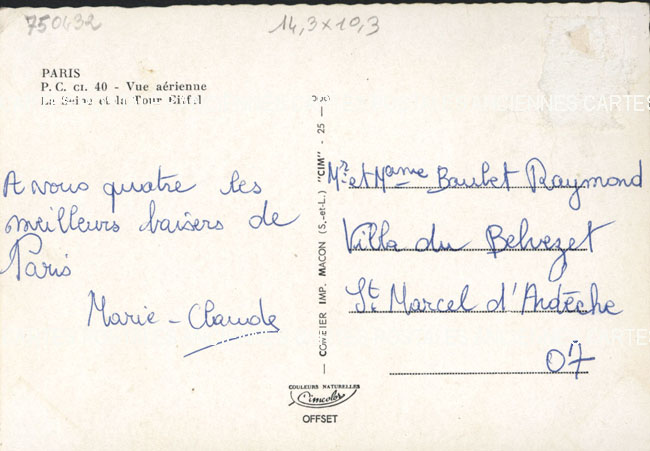 750432
14,3x10,3
PARIS
P. C. CI. 40 - Vue aérienne
La Seine et la Tour Eiffel
A vous quatre les
meilleurs baisers de
Paris
Marie-Claude
COMBIER IMP. MACON (S.-et-L.) "CIM" - 25 -
Mr et Mame Baulet Raymond
Villa du Belvezet
St Marcel d'Ardèche
07
COULEURS NATURELLES
Cimcolor
OFFSET
ANCIENNES CARTES